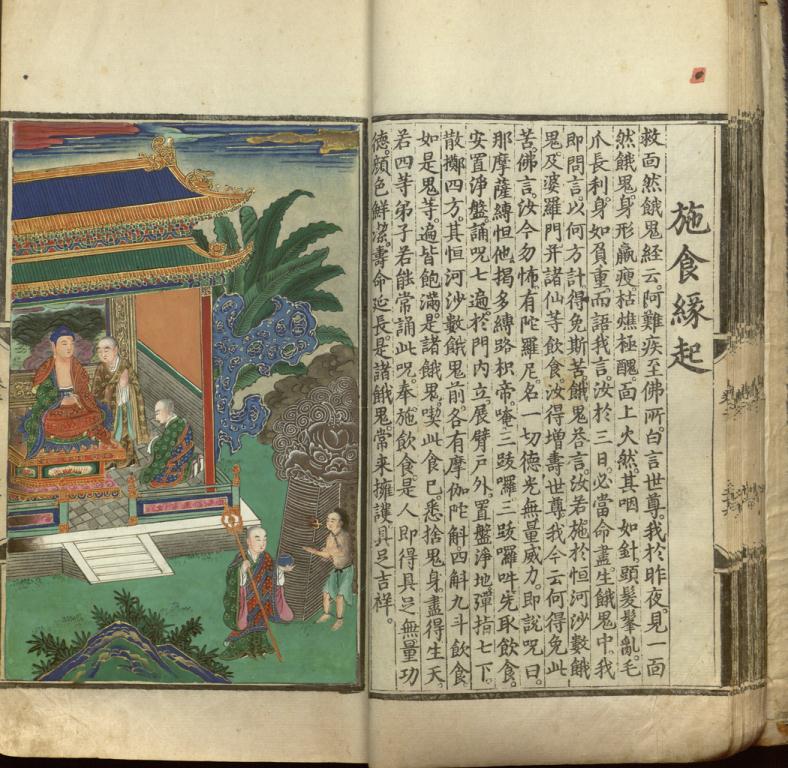 施食緣起
救面然餓鬼経云。阿難疾至佛所。白言世尊。我於昨夜。見一面
然餓鬼。身形羸瘦。枯燋極醜。面上火然。其咽如針。頭髮髼亂。毛
爪長利。身如負重。而語我言。汝於三日。必當命盡。生餓鬼中。我
即問言。以何方計。得免斯苦。餓鬼荅言。汝若施於恒河沙數餓
鬼及婆羅門并諸仙等飲食。汝得增壽。世尊我今云何得免此
苦。佛言。汝今勿怖。有陀羅尼。名一切德光無量威力。即說呪曰。
那摩薩縛怛他揭多縛路枳帝。唵三跋囉三跋囉吽。先取飲食。
安置淨盤。誦呪七遍。於門內立。展臂户外。置盤淨地。彈指七下。
散擲四方。其恒河沙數餓鬼前。各有摩伽陀斛。四斛九斗飲食。
如是鬼等。遍皆飽滿。是諸餓鬼。喫此食已。悉捨鬼身。盡得生天。
若四等弟子。若能常誦此呪。奉施飲食。是人即得具足無量功
德。顏色鮮潔。壽命延長。是諸餓鬼。常来擁護。具足吉祥。